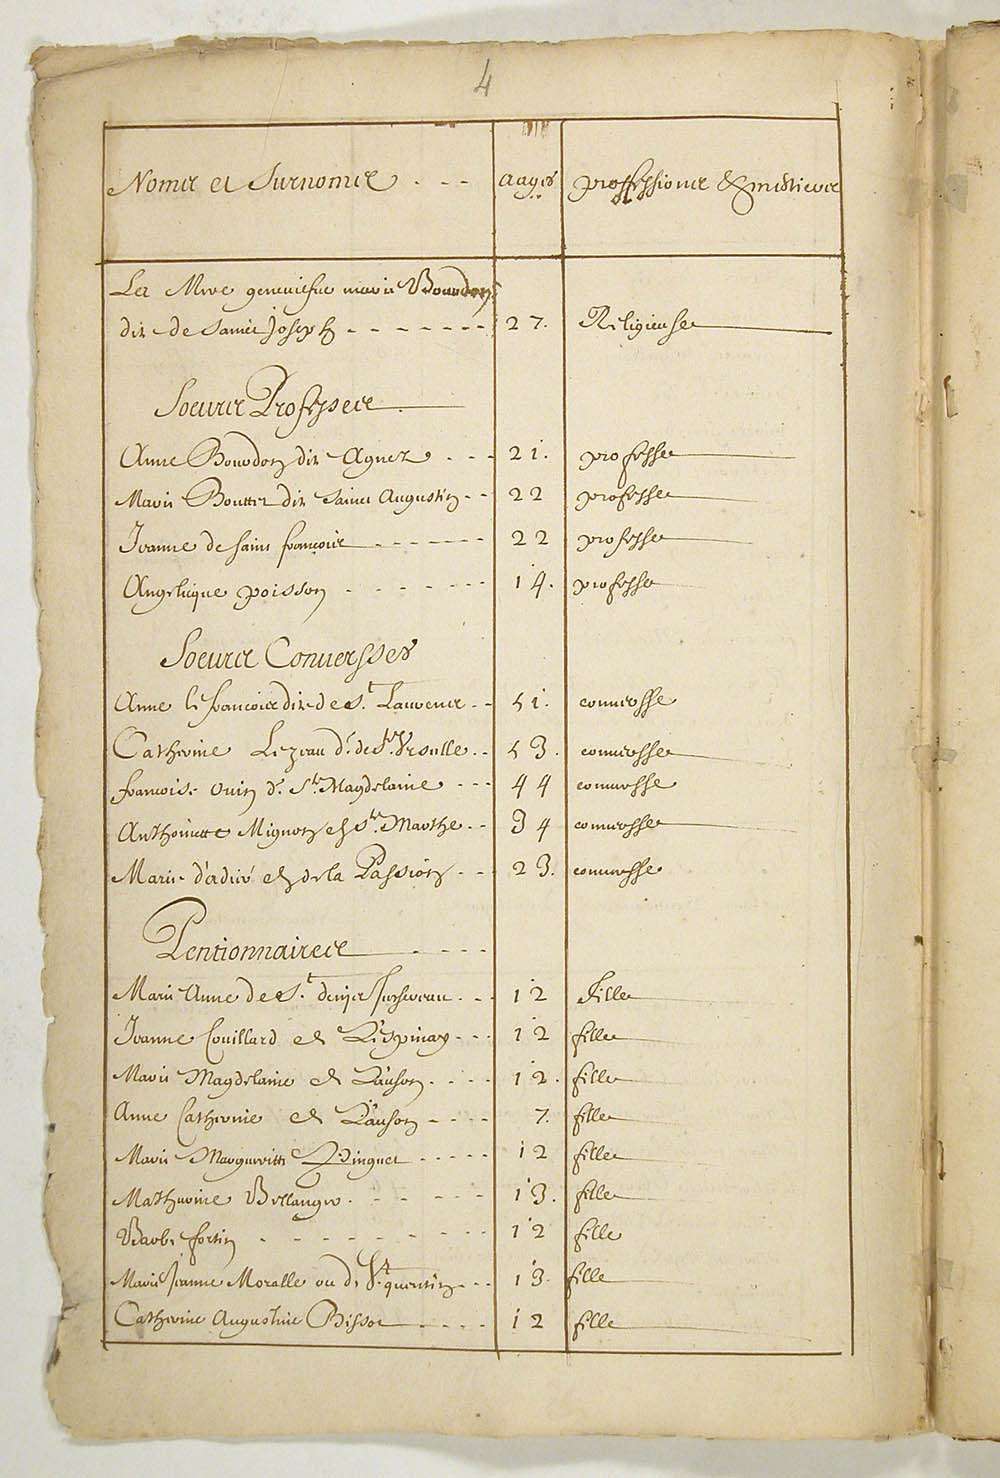 4
Nomes et Surnomes aages proffessiones & mestieres
La Mere geneviefve marie Bourdon
dit de Saint Joseph 27. Religieuse
Soeures Professes
Anne Bourdon dit Agnes 21. professe
Marie Boutter dit Saint Augustin 22 professe
Jeanne de Saint françois 22 professe
Angelique poisson 14. professe
Soeures Conversses
Anne le françois dit de St. Laurence 51. conversse
Catherine Lezeau d. de Ste Ursulle 53. conversse
francoise ouin d. Ste. Magdelaine 44 conversse
Anthoinette Mignon de Ste. Marthe 34 conversse
Marie de la Passion 23. conversse
Pentionnaires
Marie Anne de St. denys 12 fille
Jeanne Couillard de L'espinay 12 fille
Marie Magdelaine de Lauson 12. fille
Anne Catherine de Lauson 7. fille
Marie Margueritte Dinguet 12 fille
Mathurine Bellanger 13. fille
Barbe fortin 12 fille
Marie Jeanne Moralle ou de St quentin 13. fille
Catherine Augustine Bissot 12 fille